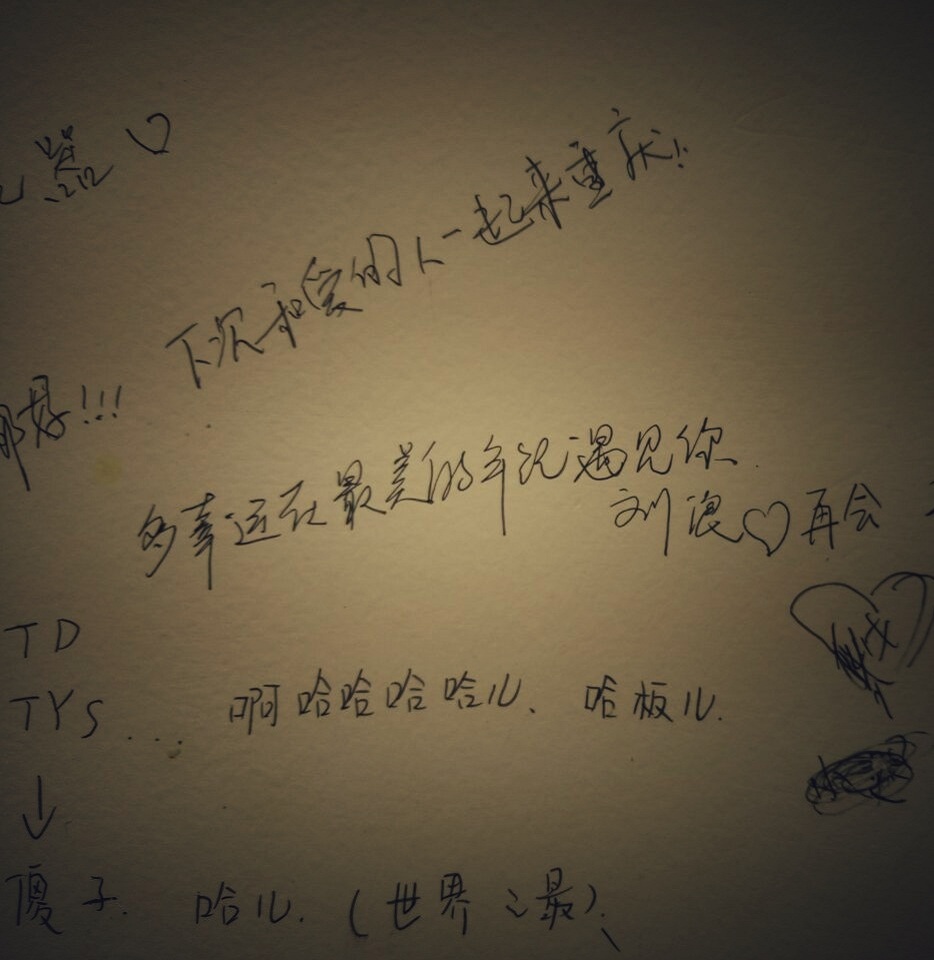 器
下次和爱的人一起来重庆!!
那好!!!
多幸运在最美的年纪遇见你.
刘浪♡再会
TD
TYS....
啊哈哈哈哈儿、哈板儿.
↓
傻子.
哈儿.(世界之最)、